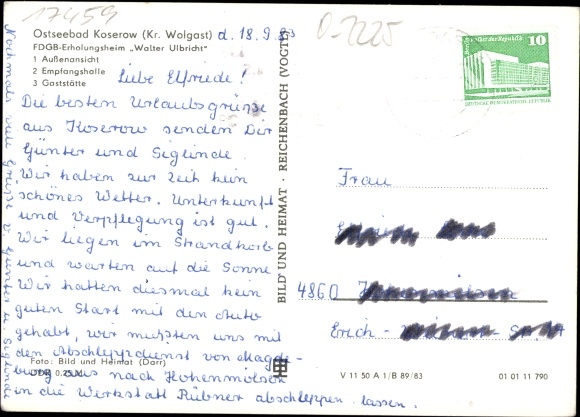 17459
D-2225
Ostseebad Koserow (Kr. Wolgast)
FDGB-Erholungsheim „Walter Ulbricht"
1 Außenansicht
2 Empfangshalle
3 Gaststätte
d. 18.9.83
Liebe Elfriede!
Die besten Urlaubsgrüsse
aus Koserow senden Dir
Günter und Sieglinde.
Wir haben zur Zeit kein
schönes Wetter. Unterkunft
und Verpflegung ist gut.
Wir liegen im Strandkorb
und warten auf die Sonne
Wir hatten diesmal kein
guten Start mit den Auto
gehabt, wir mußten uns mit
den Abschleppdienst von Magde-
burg aus nach Hohenmölsen
in die Werkstatt Rübner abschleppen lassen.
Nochmals viele Grüße v. Günter u. Sieglinde
Foto: Bild und Heimat (Dorr)
DDR
BILD UND HEIMAT · REICHENBACH (VOGTL)
10
DEUTSCHE DEMOKRATISCHE REPUBLIK
Frau
4860
Erich-
V 11 50 A 1/B 89/83
01 01 11 790